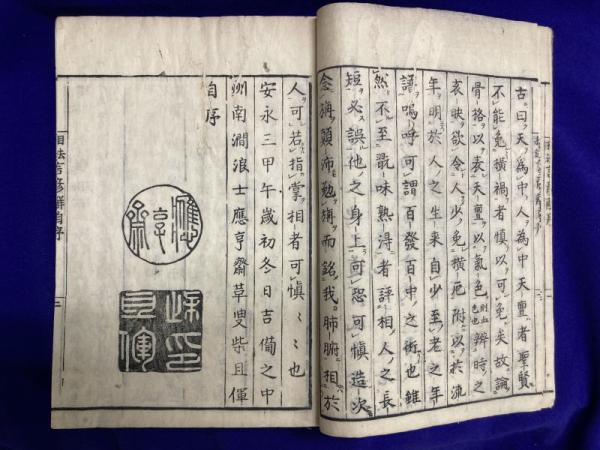 古曰天為中人為中天亶者聖賢
不能免橫禍者慎以可免矣故論
骨格以表天亶以氣色則血色也辨時之
衰映欲令人少免橫厄附以於流
年明於人之生来自少至老之年
譜嗚呼可謂百發百中之術也雖
然不至翫味熟得者評相人之長
短必誤他之身上可恐可慎造次
念旃顛沛勉旃而銘我肺腑相於
人可若指掌相者可慎〻〻也
安永三甲午歳初冬日吉備之中
州南澗浪士應亨齋草叟柴且僤
自序
應亨齋